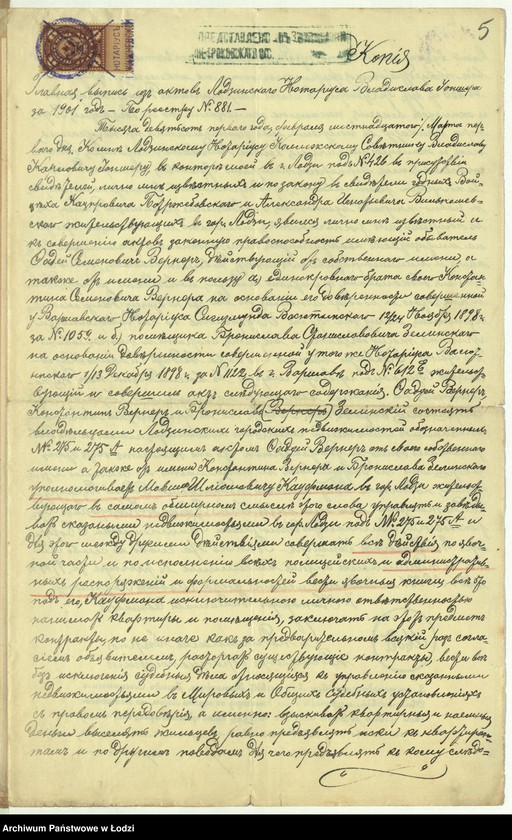 5
ПРЕДСТАВЛЕНО
Копія
НОТАРІУСЪ
Главная выпись изъ актовъ Лодзинскаго Нотаріуса Владислава Іоншера
за 1901 годъ. — По реестру № 881. —
Тысяча девятьсотъ перваго года, февраля шестнадцатаго / Марта пер-
ваго дня, ко мнѣ Лодзинскому Нотаріусу Коллежскому Совѣтнику Владиславу
Карловичу Іоншеру, въ конторѣ моей въ г. Лодзи подъ № 426 въ присутствіи
свидѣтелей, лично мнѣ извѣстныхъ и по закону въ свидѣтели годныхъ Вой-
цѣха Каспровича и Александра
скаго жительствующихъ въ гор. Лодзи, явился лично мнѣ извѣстный и
къ совершенію актовъ законную правоспособность имѣющій обыватель
Фадей Семеновичъ Вернеръ, дѣйствующій отъ собственнаго имени, а
также отъ имени и въ пользу а) единокровнаго брата своего Констан-
тина Семеновича Вернера на основаніи его довѣренности совершенной
у Варшавскаго Нотаріуса Сигизмунда 12/24 Ноября 1898 г.
за № 1059 и б) помѣщика Бронислава Станиславовича Зелинскаго
на основаніи довѣренности совершенной у того же Нотаріуса
1/13 Декабря 1898 г. за № 1122 въ г. Варшавѣ подъ № 612 жительст-
вующій и совершилъ актъ слѣдующаго содержанія: Фадей Вернеръ,
Константинъ Вернеръ и Брониславъ (Вернеръ) Зелинскій состоятъ
владѣльцами Лодзинскихъ городскихъ недвижимостей обозначенныхъ
№№ 275 и 275 А настоящимъ актомъ Фадей Вернеръ отъ своего собственнаго
имени а также отъ имени Константина Вернера и Бронислава Зелинскаго
уполномочиваетъ Мовшу Шліомовича Кауфмана въ гор. Лодзи жительст-
вующаго въ самомъ обширномъ смыслѣ этого слова управлять и завѣды-
вать сказанными недвижимостями въ гор. Лодзи подъ №№ 275 и 275 А и
для этого между другими дѣйствіями совершать всѣ дѣйствія по
части и по исполненію всѣхъ полицейскихъ и административ-
ныхъ распоряженій и формальностей вести книги все это
подъ его, Кауфмана исключительною личною отвѣтственностью
нанимать квартиры и помѣщенія, заключать на этотъ предметъ
контракты, но не иначе какъ за предварительнымъ всякій разъ согла-
сіемъ довѣрителей, расторгать существующіе контракты, вести всѣ
безъ исключенія судебныя дѣла относящіяся къ управленію сказанными
недвижимостями въ Мировыхъ и Общихъ судебныхъ установленіяхъ
съ правомъ передовѣрія, а именно: взыскивать квартирныя и наемныя
деньги выселять жильцовъ, равно предъявлять иски къ квартиран-
тамъ и по другимъ поводамъ для чего предъявлять къ кому слѣдо-
Archiwum Państwowe w Łodzi